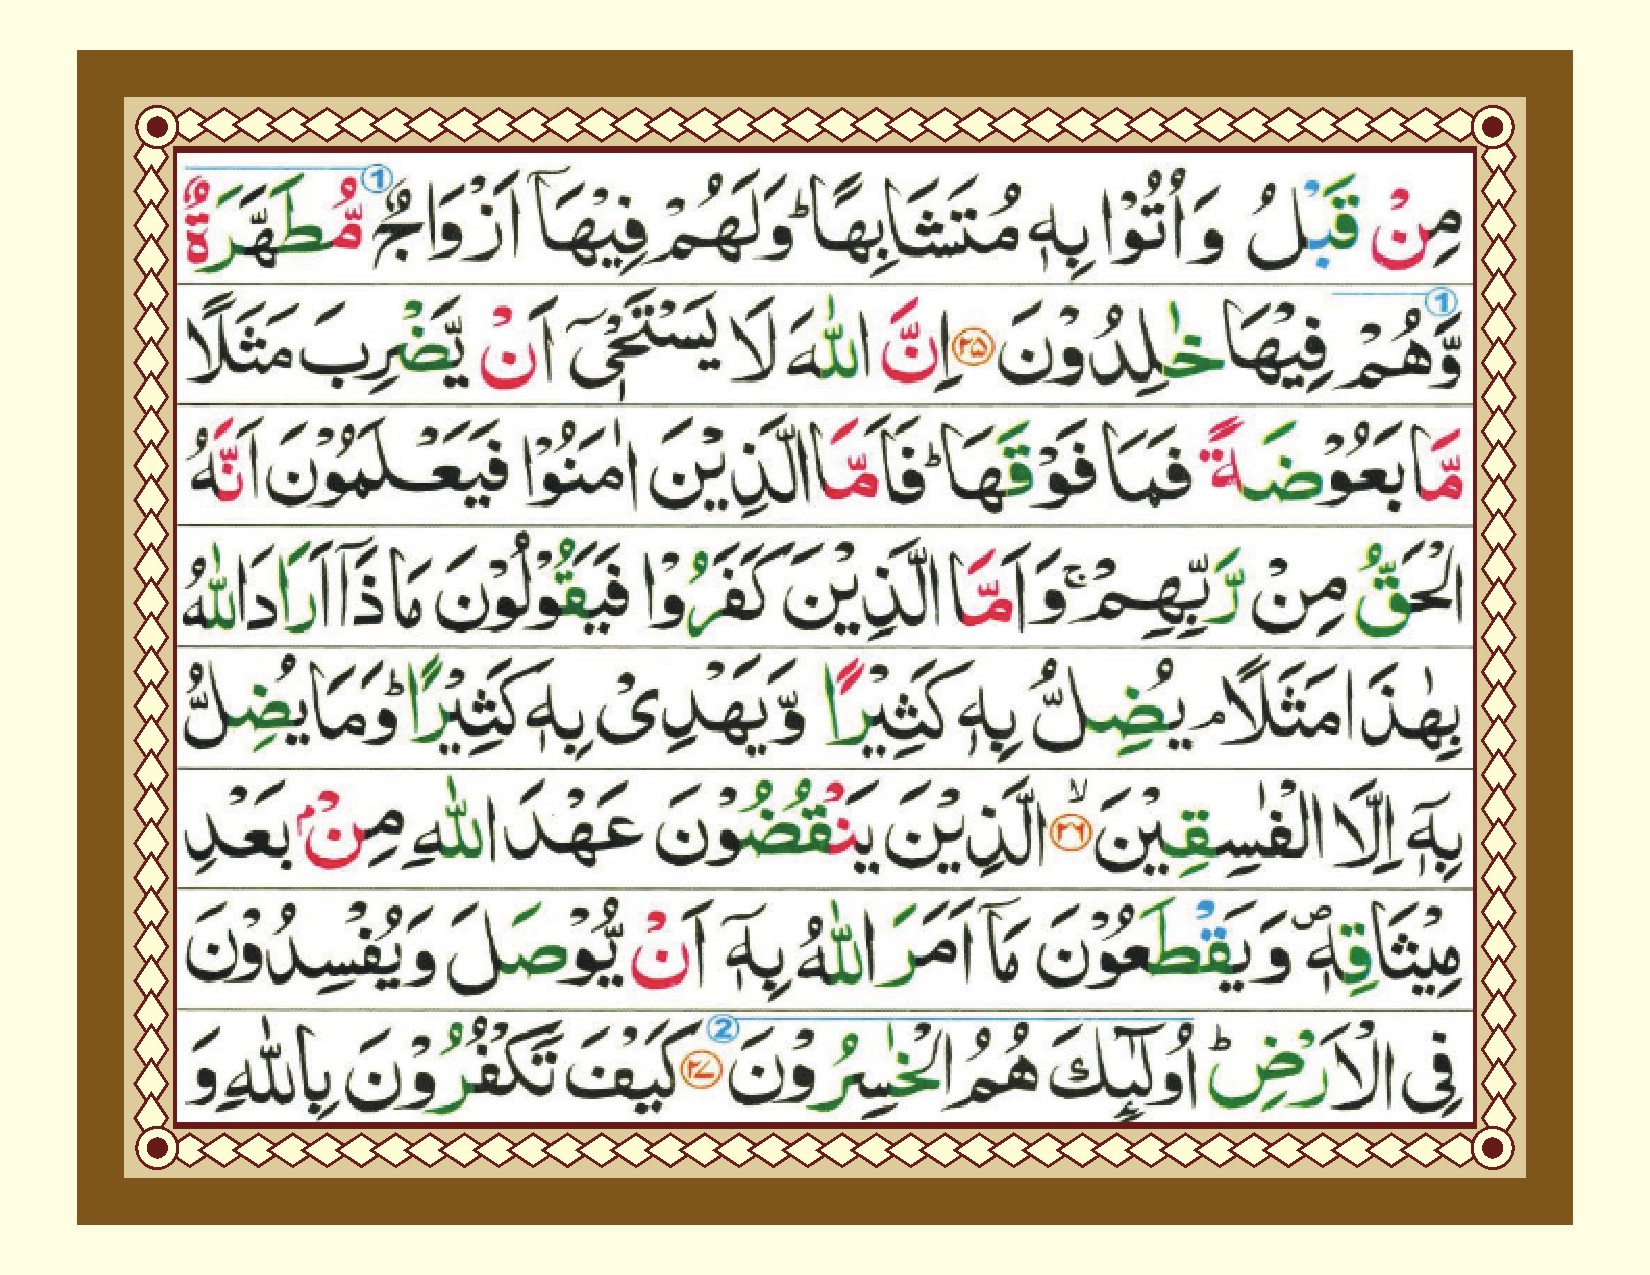 مِنْ قَبْلُ وَاُتُوْا بِهٖ مُتَشَابِهًا ؕ وَلَهُمْ فِيْهَاۤ اَزْوَاجٌ ① مُّطَهَّرَةٌ
① وَّهُمْ فِيْهَا خٰلِدُوْنَ ۲۵ اِنَّ اللّٰهَ لَا يَسْتَحْيٖۤ اَنْ يَّضْرِبَ مَثَلًا
مَّا بَعُوْضَةً فَمَا فَوْقَهَا ؕ فَاَمَّا الَّذِيْنَ اٰمَنُوْا فَيَعْلَمُوْنَ اَنَّهُ
الْحَقُّ مِنْ رَّبِّهِمْ ۚ وَاَمَّا الَّذِيْنَ كَفَرُوْا فَيَقُوْلُوْنَ مَاذَاۤ اَرَادَ اللّٰهُ
بِهٰذَا مَثَلًا ۘ يُضِلُّ بِهٖ كَثِيْرًا وَّيَهْدِىْ بِهٖ كَثِيْرًا ؕ وَمَا يُضِلُّ
بِهٖۤ اِلَّا الْفٰسِقِيْنَ ۙ ۲۶ الَّذِيْنَ يَنْقُضُوْنَ عَهْدَ اللّٰهِ مِنْۢ بَعْدِ
مِيْثَاقِهٖ ۖ وَيَقْطَعُوْنَ مَاۤ اَمَرَ اللّٰهُ بِهٖۤ اَنْ يُّوْصَلَ وَيُفْسِدُوْنَ
فِى الْاَرْضِ ؕ اُولٰٓئِكَ هُمُ الْخٰسِرُوْنَ ② ۲۷ كَيْفَ تَكْفُرُوْنَ بِاللّٰهِ وَ